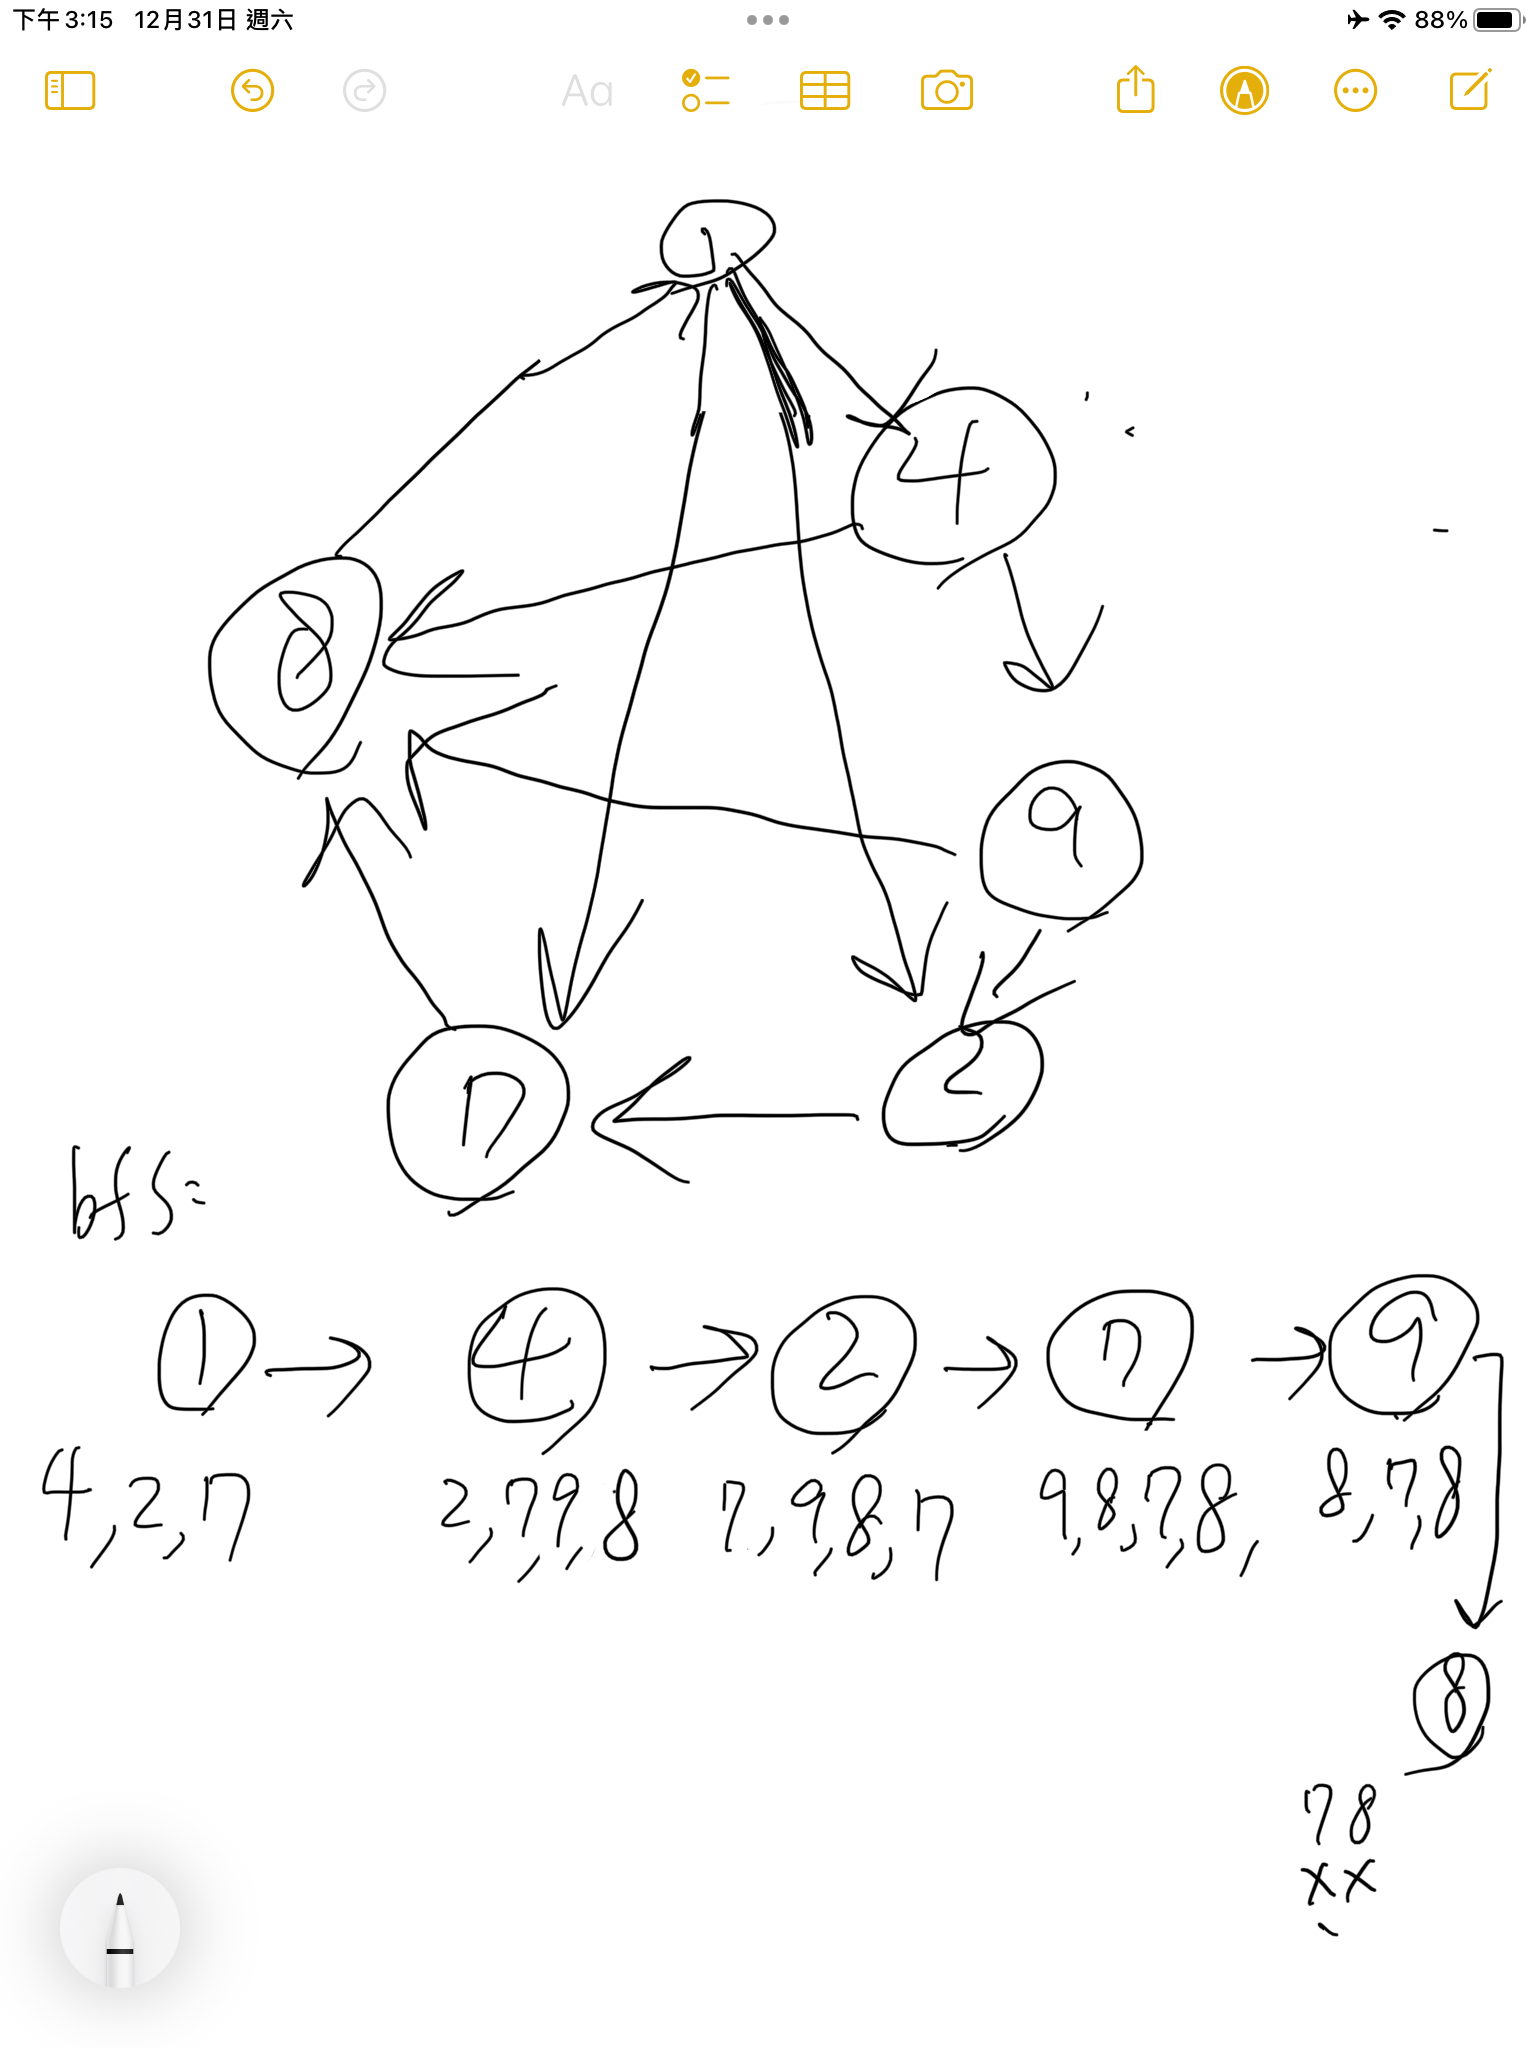 下午3:15 12月31日 週六 88%
Aa
1
4
8
9
2
7
bfs=
1 → 4 → 2 → 7 → 9
4,2,7 2,7,9,8 7,9,8,7 9,8,7,8, 8,7,8
8
78
xx